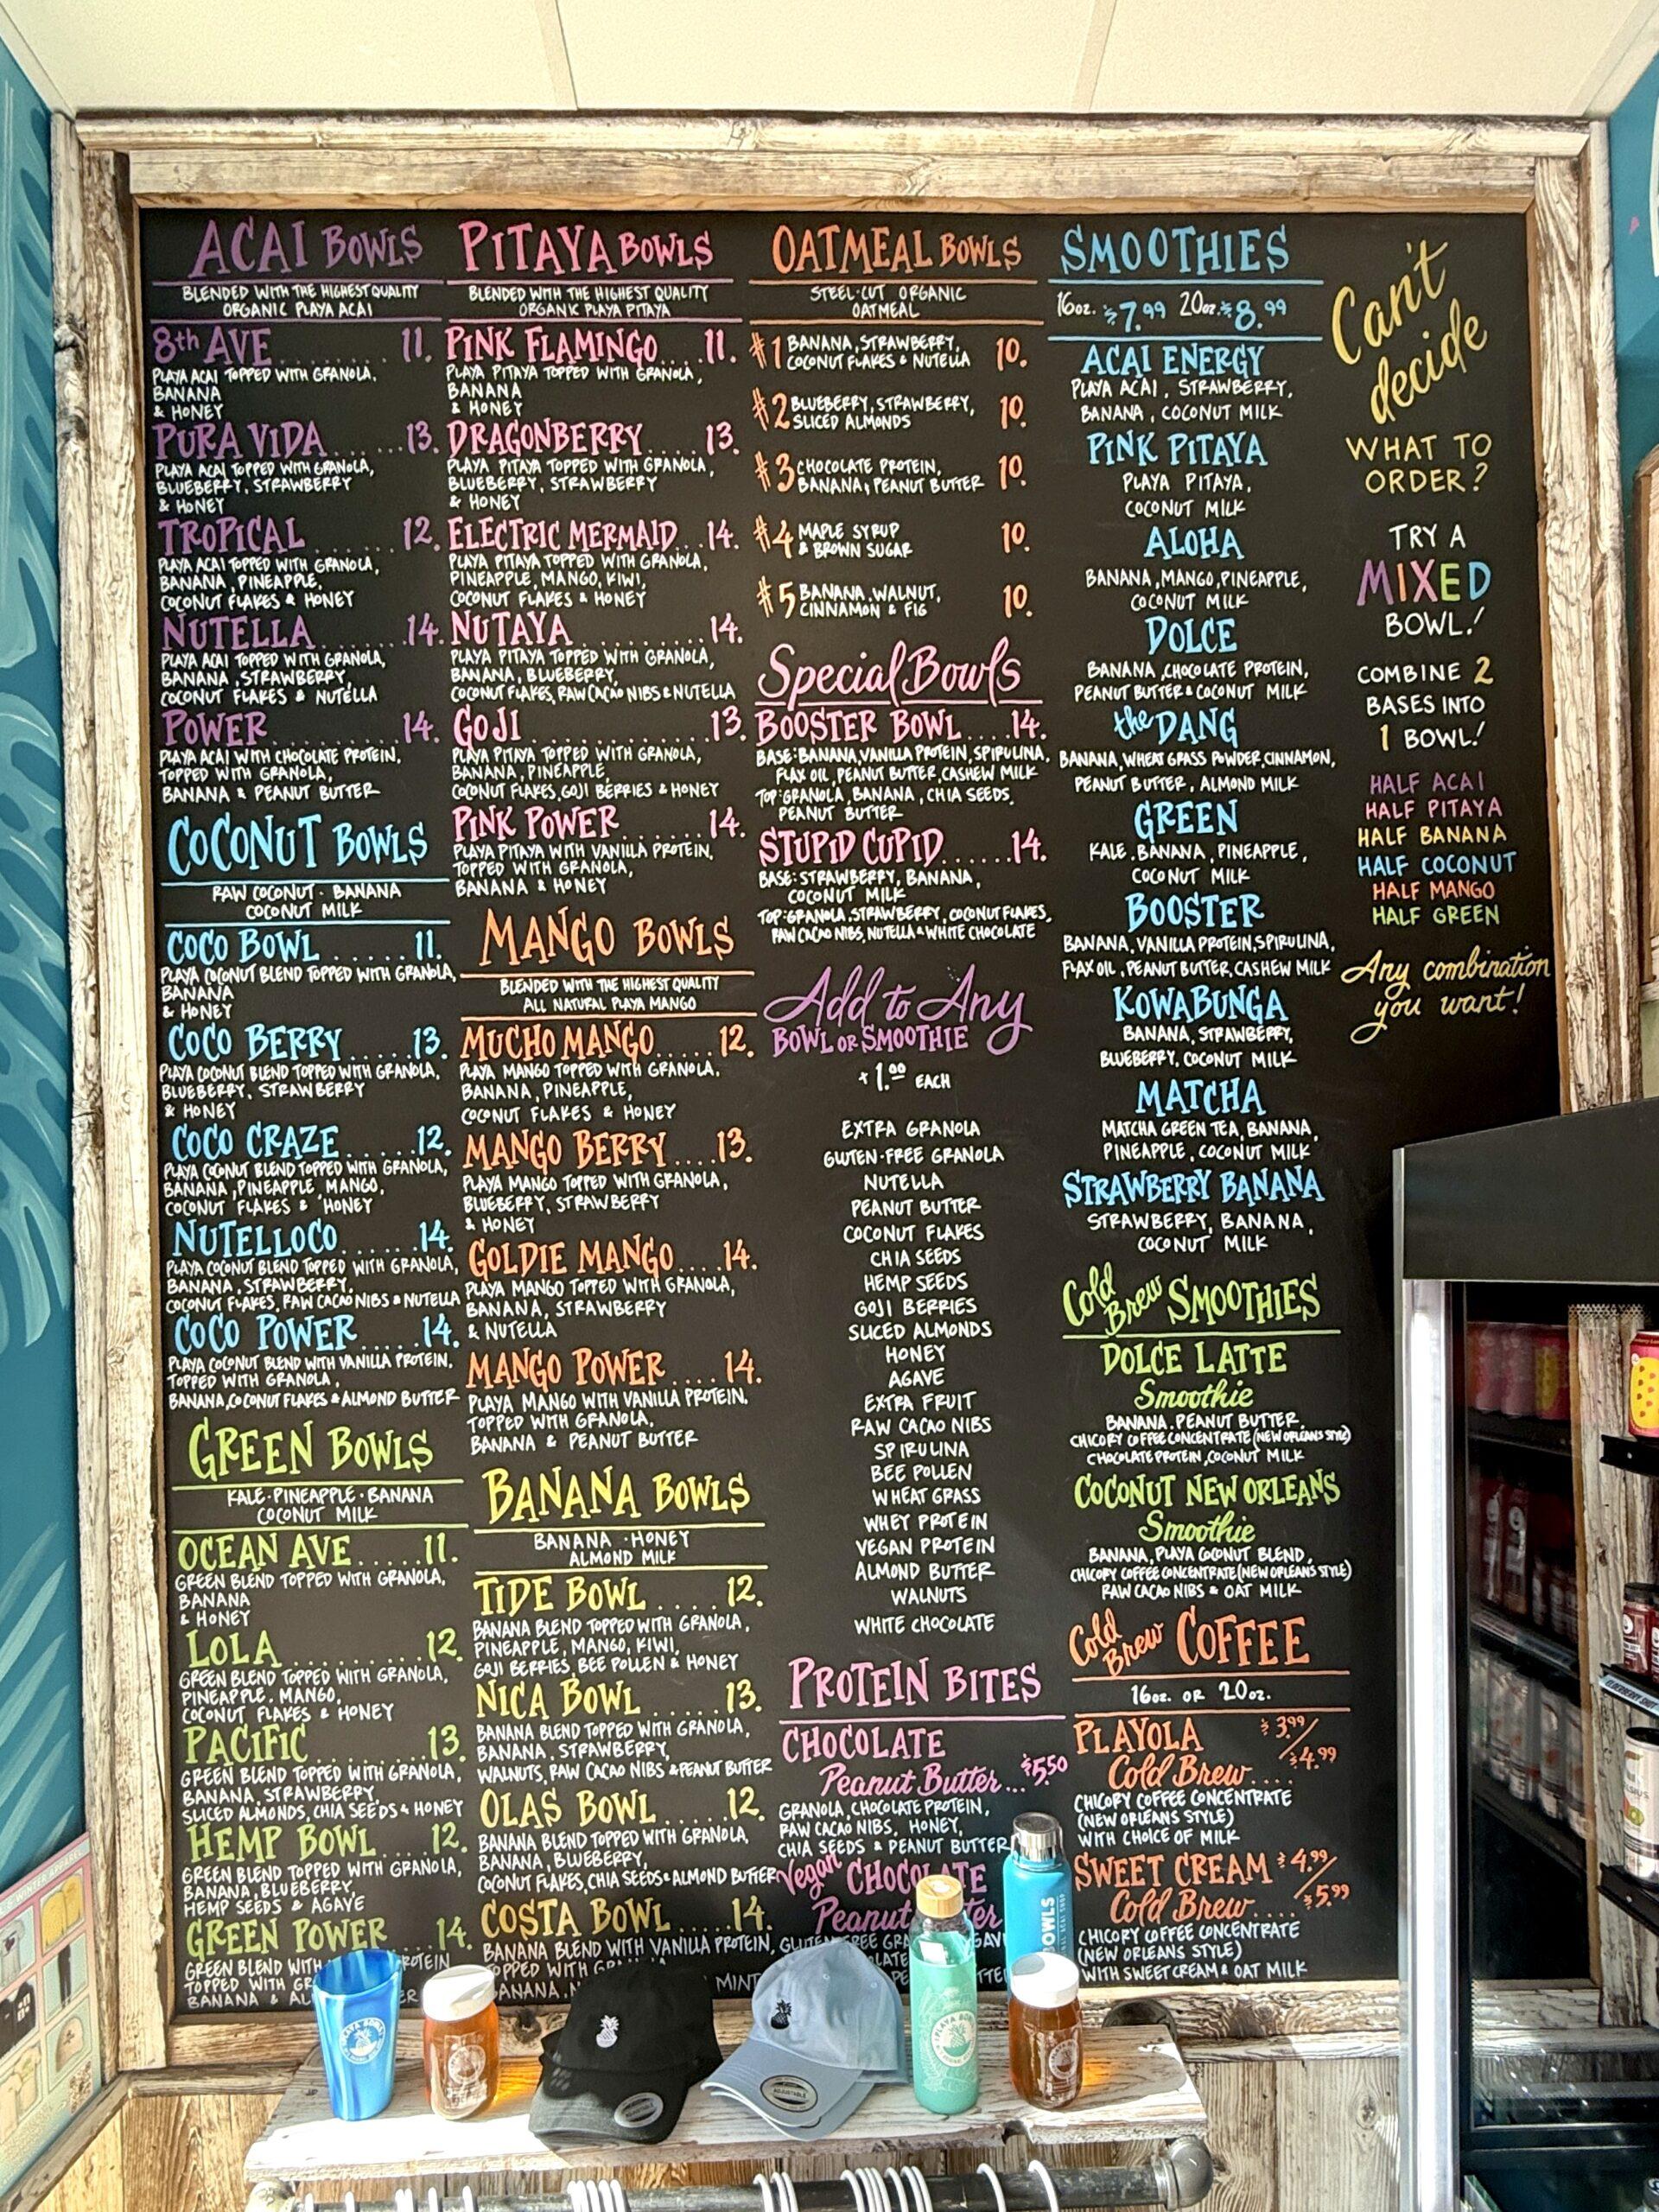 ACAI BOWLS
BLENDED WITH THE HIGHEST QUALITY
ORGANIC PLAYA ACAI
8th AVE ........ 11.
PLAYA ACAI TOPPED WITH GRANOLA,
BANANA
& HONEY
PURA VIDA ...... 13.
PLAYA ACAI TOPPED WITH GRANOLA,
BLUEBERRY, STRAWBERRY
& HONEY
TROPICAL ....... 12.
PLAYA ACAI TOPPED WITH GRANOLA,
BANANA, PINEAPPLE,
COCONUT FLAKES & HONEY
NUTELLA ....... 14.
PLAYA ACAI TOPPED WITH GRANOLA,
BANANA, STRAWBERRY,
COCONUT FLAKES & NUTELLA
POWER ......... 14.
PLAYA ACAI WITH CHOCOLATE PROTEIN,
TOPPED WITH GRANOLA,
BANANA & PEANUT BUTTER
COCONUT BOWLS
RAW COCONUT · BANANA
COCONUT MILK
COCO BOWL ...... 11.
PLAYA COCONUT BLEND TOPPED WITH GRANOLA,
BANANA
& HONEY
COCO BERRY ..... 13.
PLAYA COCONUT BLEND TOPPED WITH GRANOLA,
BLUEBERRY, STRAWBERRY
& HONEY
COCO CRAZE ..... 12.
PLAYA COCONUT BLEND TOPPED WITH GRANOLA,
BANANA, PINEAPPLE, MANGO,
COCONUT FLAKES & HONEY
NUTELLOCO ...... 14.
PLAYA COCONUT BLEND TOPPED WITH GRANOLA,
BANANA, STRAWBERRY,
COCONUT FLAKES, RAW CACAO NIBS & NUTELLA
COCO POWER ..... 14.
PLAYA COCONUT BLEND WITH VANILLA PROTEIN,
TOPPED WITH GRANOLA,
BANANA, COCONUT FLAKES & ALMOND BUTTER
GREEN BOWLS
KALE · PINEAPPLE · BANANA
COCONUT MILK
OCEAN AVE ..... 11.
GREEN BLEND TOPPED WITH GRANOLA,
BANANA
& HONEY
LOLA .......... 12.
GREEN BLEND TOPPED WITH GRANOLA,
PINEAPPLE, MANGO,
COCONUT FLAKES & HONEY
PACIFIC ........ 13.
GREEN BLEND TOPPED WITH GRANOLA,
BANANA, STRAWBERRY,
SLICED ALMONDS, CHIA SEEDS & HONEY
HEMP BOWL ..... 12.
GREEN BLEND TOPPED WITH GRANOLA,
BANANA, BLUEBERRY,
HEMP SEEDS & AGAVE
GREEN POWER ... 14.
GREEN BLEND WITH
TOPPED WITH
BANANA &
PITAYA BOWLS
BLENDED WITH THE HIGHEST QUALITY
ORGANIC PLAYA PITAYA
PINK FLAMINGO .... 11.
PLAYA PITAYA TOPPED WITH GRANOLA,
BANANA
& HONEY
DRAGONBERRY .... 13.
PLAYA PITAYA TOPPED WITH GRANOLA,
BLUEBERRY, STRAWBERRY
& HONEY
ELECTRIC MERMAID .. 14.
PLAYA PITAYA TOPPED WITH GRANOLA,
PINEAPPLE, MANGO, KIWI,
COCONUT FLAKES & HONEY
NUTAYA .......... 14.
PLAYA PITAYA TOPPED WITH GRANOLA,
BANANA, BLUEBERRY,
COCONUT FLAKES, RAW CACAO NIBS & NUTELLA
GOJI ............ 13.
PLAYA PITAYA TOPPED WITH GRANOLA,
BANANA, PINEAPPLE,
COCONUT FLAKES, GOJI BERRIES & HONEY
PINK POWER ....... 14.
PLAYA PITAYA WITH VANILLA PROTEIN,
TOPPED WITH GRANOLA,
BANANA & HONEY
MANGO BOWLS
BLENDED WITH THE HIGHEST QUALITY
ALL NATURAL PLAYA MANGO
MUCHO MANGO ..... 12.
PLAYA MANGO TOPPED WITH GRANOLA,
BANANA, PINEAPPLE,
COCONUT FLAKES & HONEY
MANGO BERRY .... 13.
PLAYA MANGO TOPPED WITH GRANOLA,
BLUEBERRY, STRAWBERRY
& HONEY
GOLDIE MANGO .... 14.
PLAYA MANGO TOPPED WITH GRANOLA,
BANANA, STRAWBERRY
& NUTELLA
MANGO POWER .... 14.
PLAYA MANGO WITH VANILLA PROTEIN,
TOPPED WITH GRANOLA,
BANANA & PEANUT BUTTER
BANANA BOWLS
BANANA · HONEY
ALMOND MILK
TIDE BOWL ..... 12.
BANANA BLEND TOPPED WITH GRANOLA,
PINEAPPLE, MANGO, KIWI,
GOJI BERRIES, BEE POLLEN & HONEY
NICA BOWL ..... 13.
BANANA BLEND TOPPED WITH GRANOLA,
BANANA, STRAWBERRY,
WALNUTS, RAW CACAO NIBS & PEANUT BUTTER
OLAS BOWL ..... 12.
BANANA BLEND TOPPED WITH GRANOLA,
BANANA, BLUEBERRY,
COCONUT FLAKES, CHIA SEEDS & ALMOND BUTTER
COSTA BOWL ..... 14.
BANANA BLEND WITH VANILLA PROTEIN,
MINT
OATMEAL BOWLS
STEEL-CUT ORGANIC
OATMEAL
#1 BANANA, STRAWBERRY, 10.
COCONUT FLAKES & NUTELLA
#2 BLUEBERRY, STRAWBERRY, 10.
SLICED ALMONDS
#3 CHOCOLATE PROTEIN, 10.
BANANA, PEANUT BUTTER
#4 MAPLE SYRUP 10.
& BROWN SUGAR
#5 BANANA, WALNUT, 10.
CINNAMON & FIG
Special Bowls
BOOSTER BOWL .... 14.
BASE: BANANA, VANILLA PROTEIN, SPIRULINA,
FLAX OIL, PEANUT BUTTER, CASHEW MILK
TOP: GRANOLA, BANANA, CHIA SEEDS,
PEANUT BUTTER
STUPID CUPID ...... 14.
BASE: STRAWBERRY, BANANA,
COCONUT MILK
TOP: GRANOLA, STRAWBERRY, COCONUT FLAKES,
RAW CACAO NIBS, NUTELLA & WHITE CHOCOLATE
Add to Any
BOWL OR SMOOTHIE
+ 1.00 EACH
EXTRA GRANOLA
GLUTEN-FREE GRANOLA
NUTELLA
PEANUT BUTTER
COCONUT FLAKES
CHIA SEEDS
HEMP SEEDS
GOJI BERRIES
SLICED ALMONDS
HONEY
AGAVE
EXTRA FRUIT
RAW CACAO NIBS
SPIRULINA
BEE POLLEN
WHEAT GRASS
WHEY PROTEIN
VEGAN PROTEIN
ALMOND BUTTER
WALNUTS
WHITE CHOCOLATE
PROTEIN BITES
CHOCOLATE
Peanut Butter ... $5.50
GRANOLA, CHOCOLATE PROTEIN,
RAW CACAO NIBS, HONEY,
CHIA SEEDS & PEANUT BUTTER
Vegan CHOCOLATE
Peanut
SMOOTHIES
16oz. $7.99 20oz. $8.99
ACAI ENERGY
PLAYA ACAI, STRAWBERRY,
BANANA, COCONUT MILK
PINK PITAYA
PLAYA PITAYA,
COCONUT MILK
ALOHA
BANANA, MANGO, PINEAPPLE,
COCONUT MILK
DOLCE
BANANA, CHOCOLATE PROTEIN,
PEANUT BUTTER & COCONUT MILK
the DANG
BANANA, WHEAT GRASS POWDER, CINNAMON,
PEANUT BUTTER, ALMOND MILK
GREEN
KALE, BANANA, PINEAPPLE,
COCONUT MILK
BOOSTER
BANANA, VANILLA PROTEIN, SPIRULINA,
FLAX OIL, PEANUT BUTTER, CASHEW MILK
KOWABUNGA
BANANA, STRAWBERRY,
BLUEBERRY, COCONUT MILK
MATCHA
MATCHA GREEN TEA, BANANA,
PINEAPPLE, COCONUT MILK
STRAWBERRY BANANA
STRAWBERRY, BANANA,
COCONUT MILK
Cold Brew SMOOTHIES
DOLCE LATTE
Smoothie
BANANA, PEANUT BUTTER,
CHICORY COFFEE CONCENTRATE (NEW ORLEANS STYLE)
CHOCOLATE PROTEIN, COCONUT MILK
COCONUT NEW ORLEANS
Smoothie
BANANA, PLAYA COCONUT BLEND,
CHICORY COFFEE CONCENTRATE (NEW ORLEANS STYLE)
RAW CACAO NIBS & OAT MILK
Cold Brew COFFEE
16oz. OR 20oz.
PLAYOLA $3.99/
Cold Brew .... $4.99
CHICORY COFFEE CONCENTRATE
(NEW ORLEANS STYLE)
WITH CHOICE OF MILK
SWEET CREAM $4.99/
Cold Brew .... $5.99
CHICORY COFFEE CONCENTRATE
(NEW ORLEANS STYLE)
WITH SWEET CREAM & OAT MILK
Can't
decide
WHAT TO
ORDER?
TRY A
MIXED
BOWL!
COMBINE 2
BASES INTO
1 BOWL!
HALF ACAI
HALF PITAYA
HALF BANANA
HALF COCONUT
HALF MANGO
HALF GREEN
Any combination
you want!
BOWLS